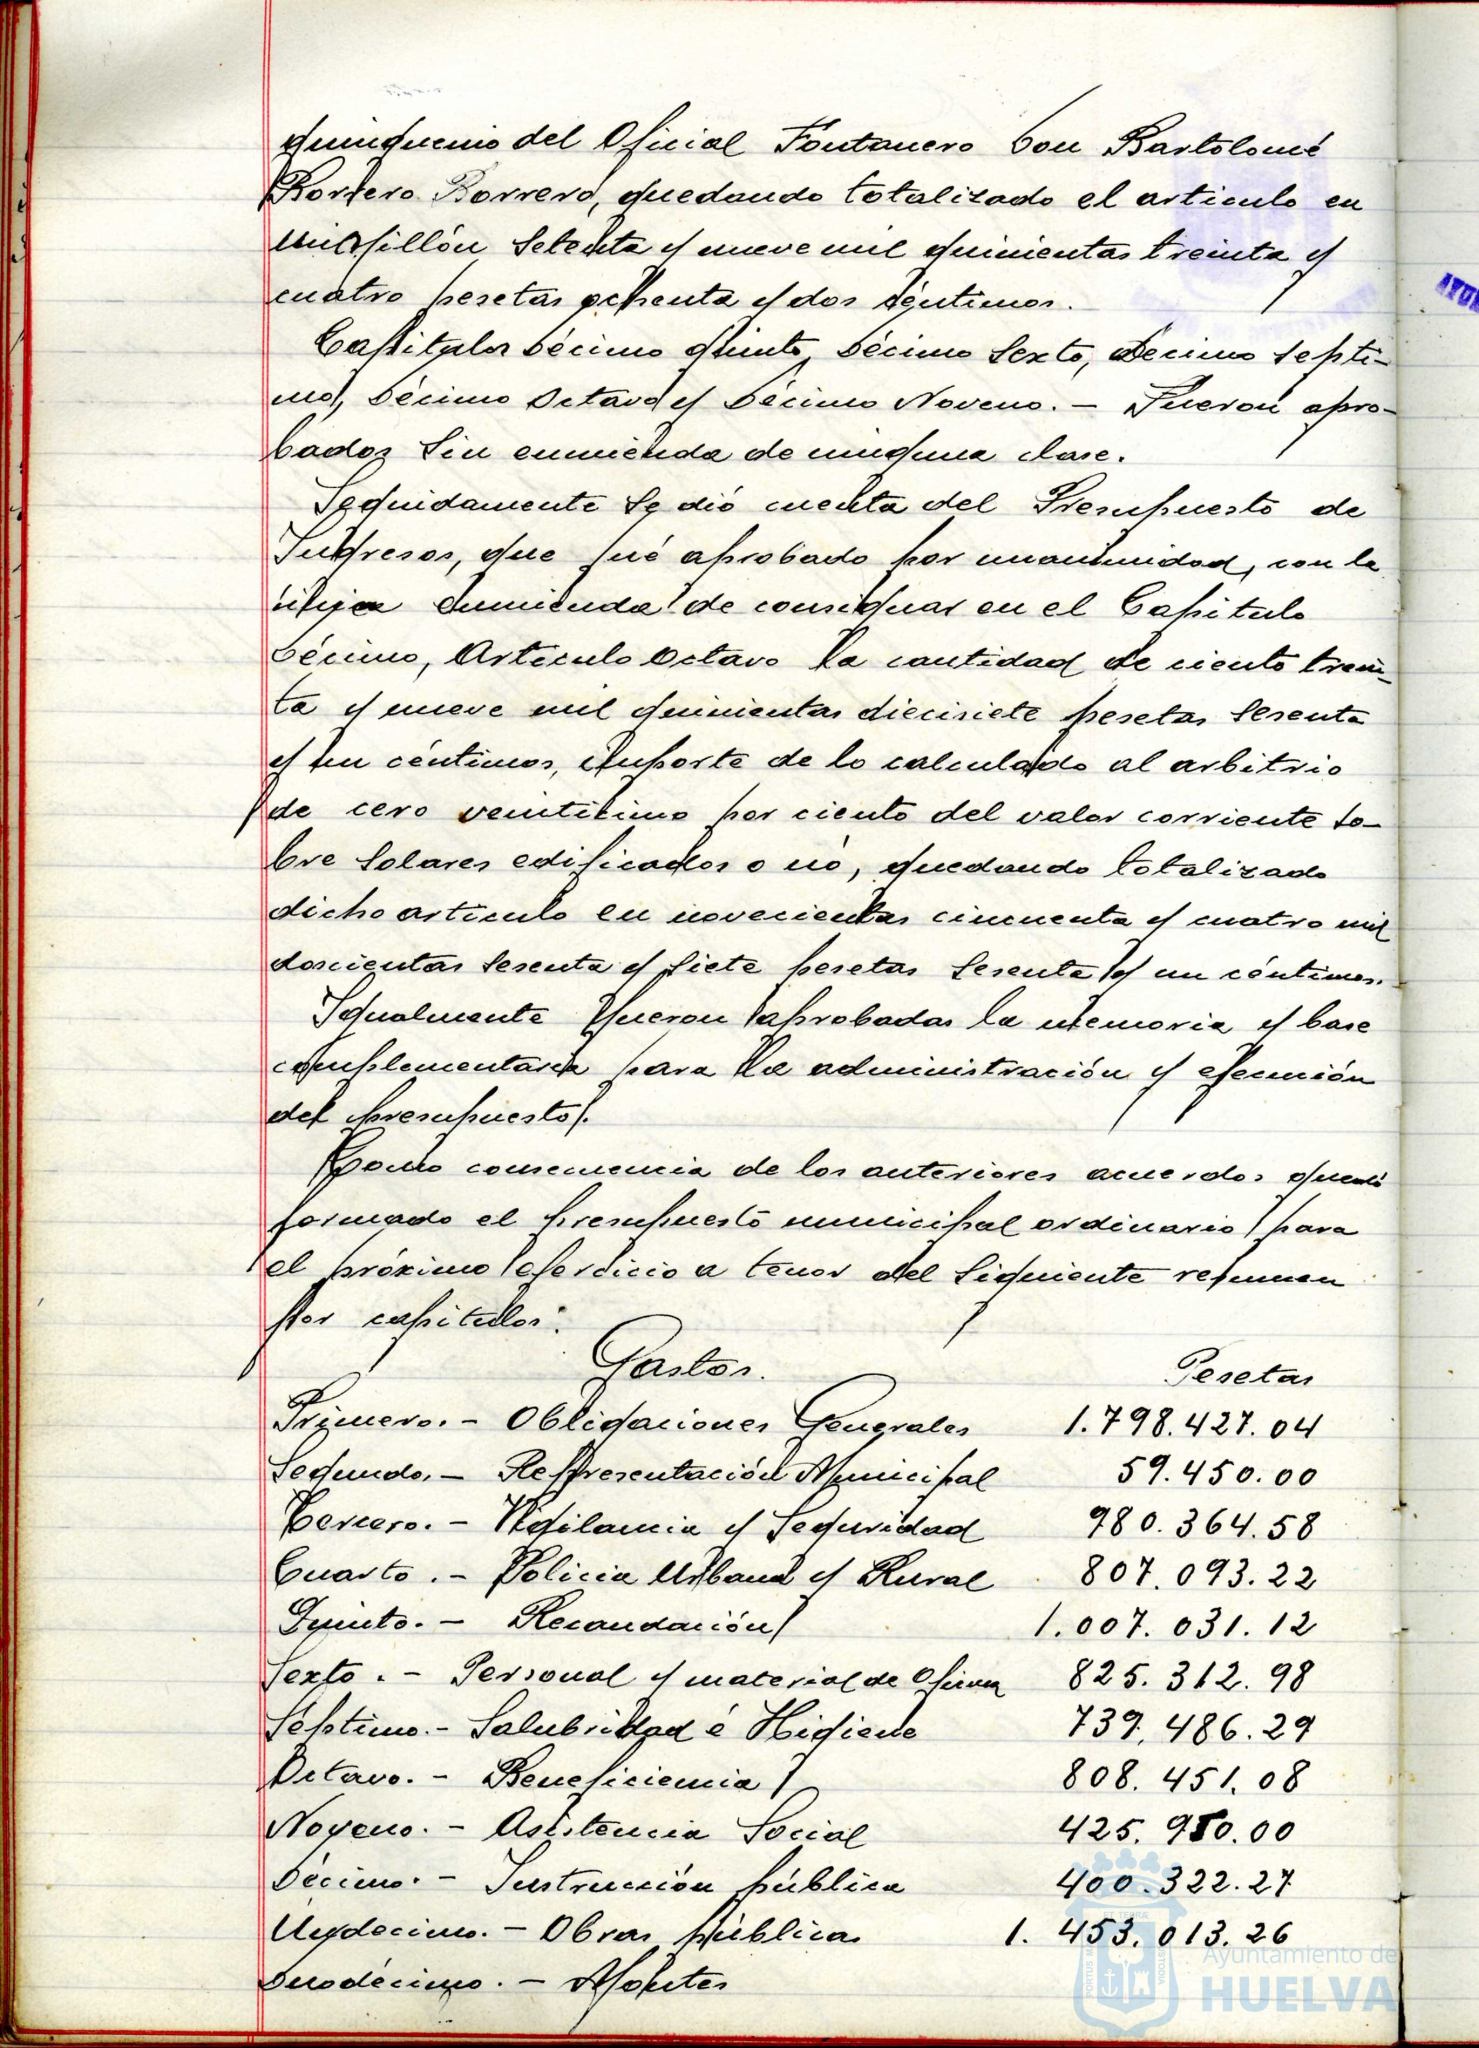 quinquenio del Oficial Fontanero Don Bartolomé
Borrero Borrero, quedando totalizado el articulo en
un millón setenta y nueve mil quinientas treinta y
cuatro pesetas ochenta y dos céntimos.
Capitulos Décimo quinto, Décimo Sexto, Décimo Septi-
mo, Décimo Octavo y Décimo Noveno. - Fueron apro-
bados sin enmienda de ninguna clase.
Seguidamente se dió cuenta del Presupuesto de
Ingresos, que fué aprobado por unanimidad, con la
única enmienda de consignar en el Capitulo
Décimo, Articulo Octavo la cantidad de ciento trein-
ta y nueve mil quinientas diecisiete pesetas sesenta
y un céntimos, importe de lo calculado al arbitrio
de cero veintisimo por ciento del valor corriente so-
bre solares edificados o no, quedando totalizado
dicho articulo en novecientas cincuenta y cuatro mil
doscientas sesenta y siete pesetas sesenta y un céntimos.
Igualmente fueron aprobadas la memoria y base
complementaria para la administración y ejecución
del presupuesto.
Como consecuencia de los anteriores acuerdos quedó
formado el presupuesto municipal ordinario para
el próximo ejercicio a tenor del siguiente resumen
por capitulos:
Gastos. Pesetas
Primero. - Obligaciones Generales 1.798.427.04
Segundo. - Representación Municipal 59.450.00
Tercero. - Vigilancia y Seguridad 980.364.58
Cuarto. - Policia Urbana y Rural 807.093.22
Quinto. - Recaudación 1.007.031.12
Sexto. - Personal y material de Oficina 825.312.98
Séptimo. - Salubridad é Higiene 739.486.29
Octavo. - Beneficiencia 808.451.08
Noveno. - Asistencia Social 425.950.00
Décimo. - Instrucción pública 400.322.27
Undecimo. - Obras públicas 1.453.013.26
Duodécimo. - Montes
Ayuntamiento de
HUELVA